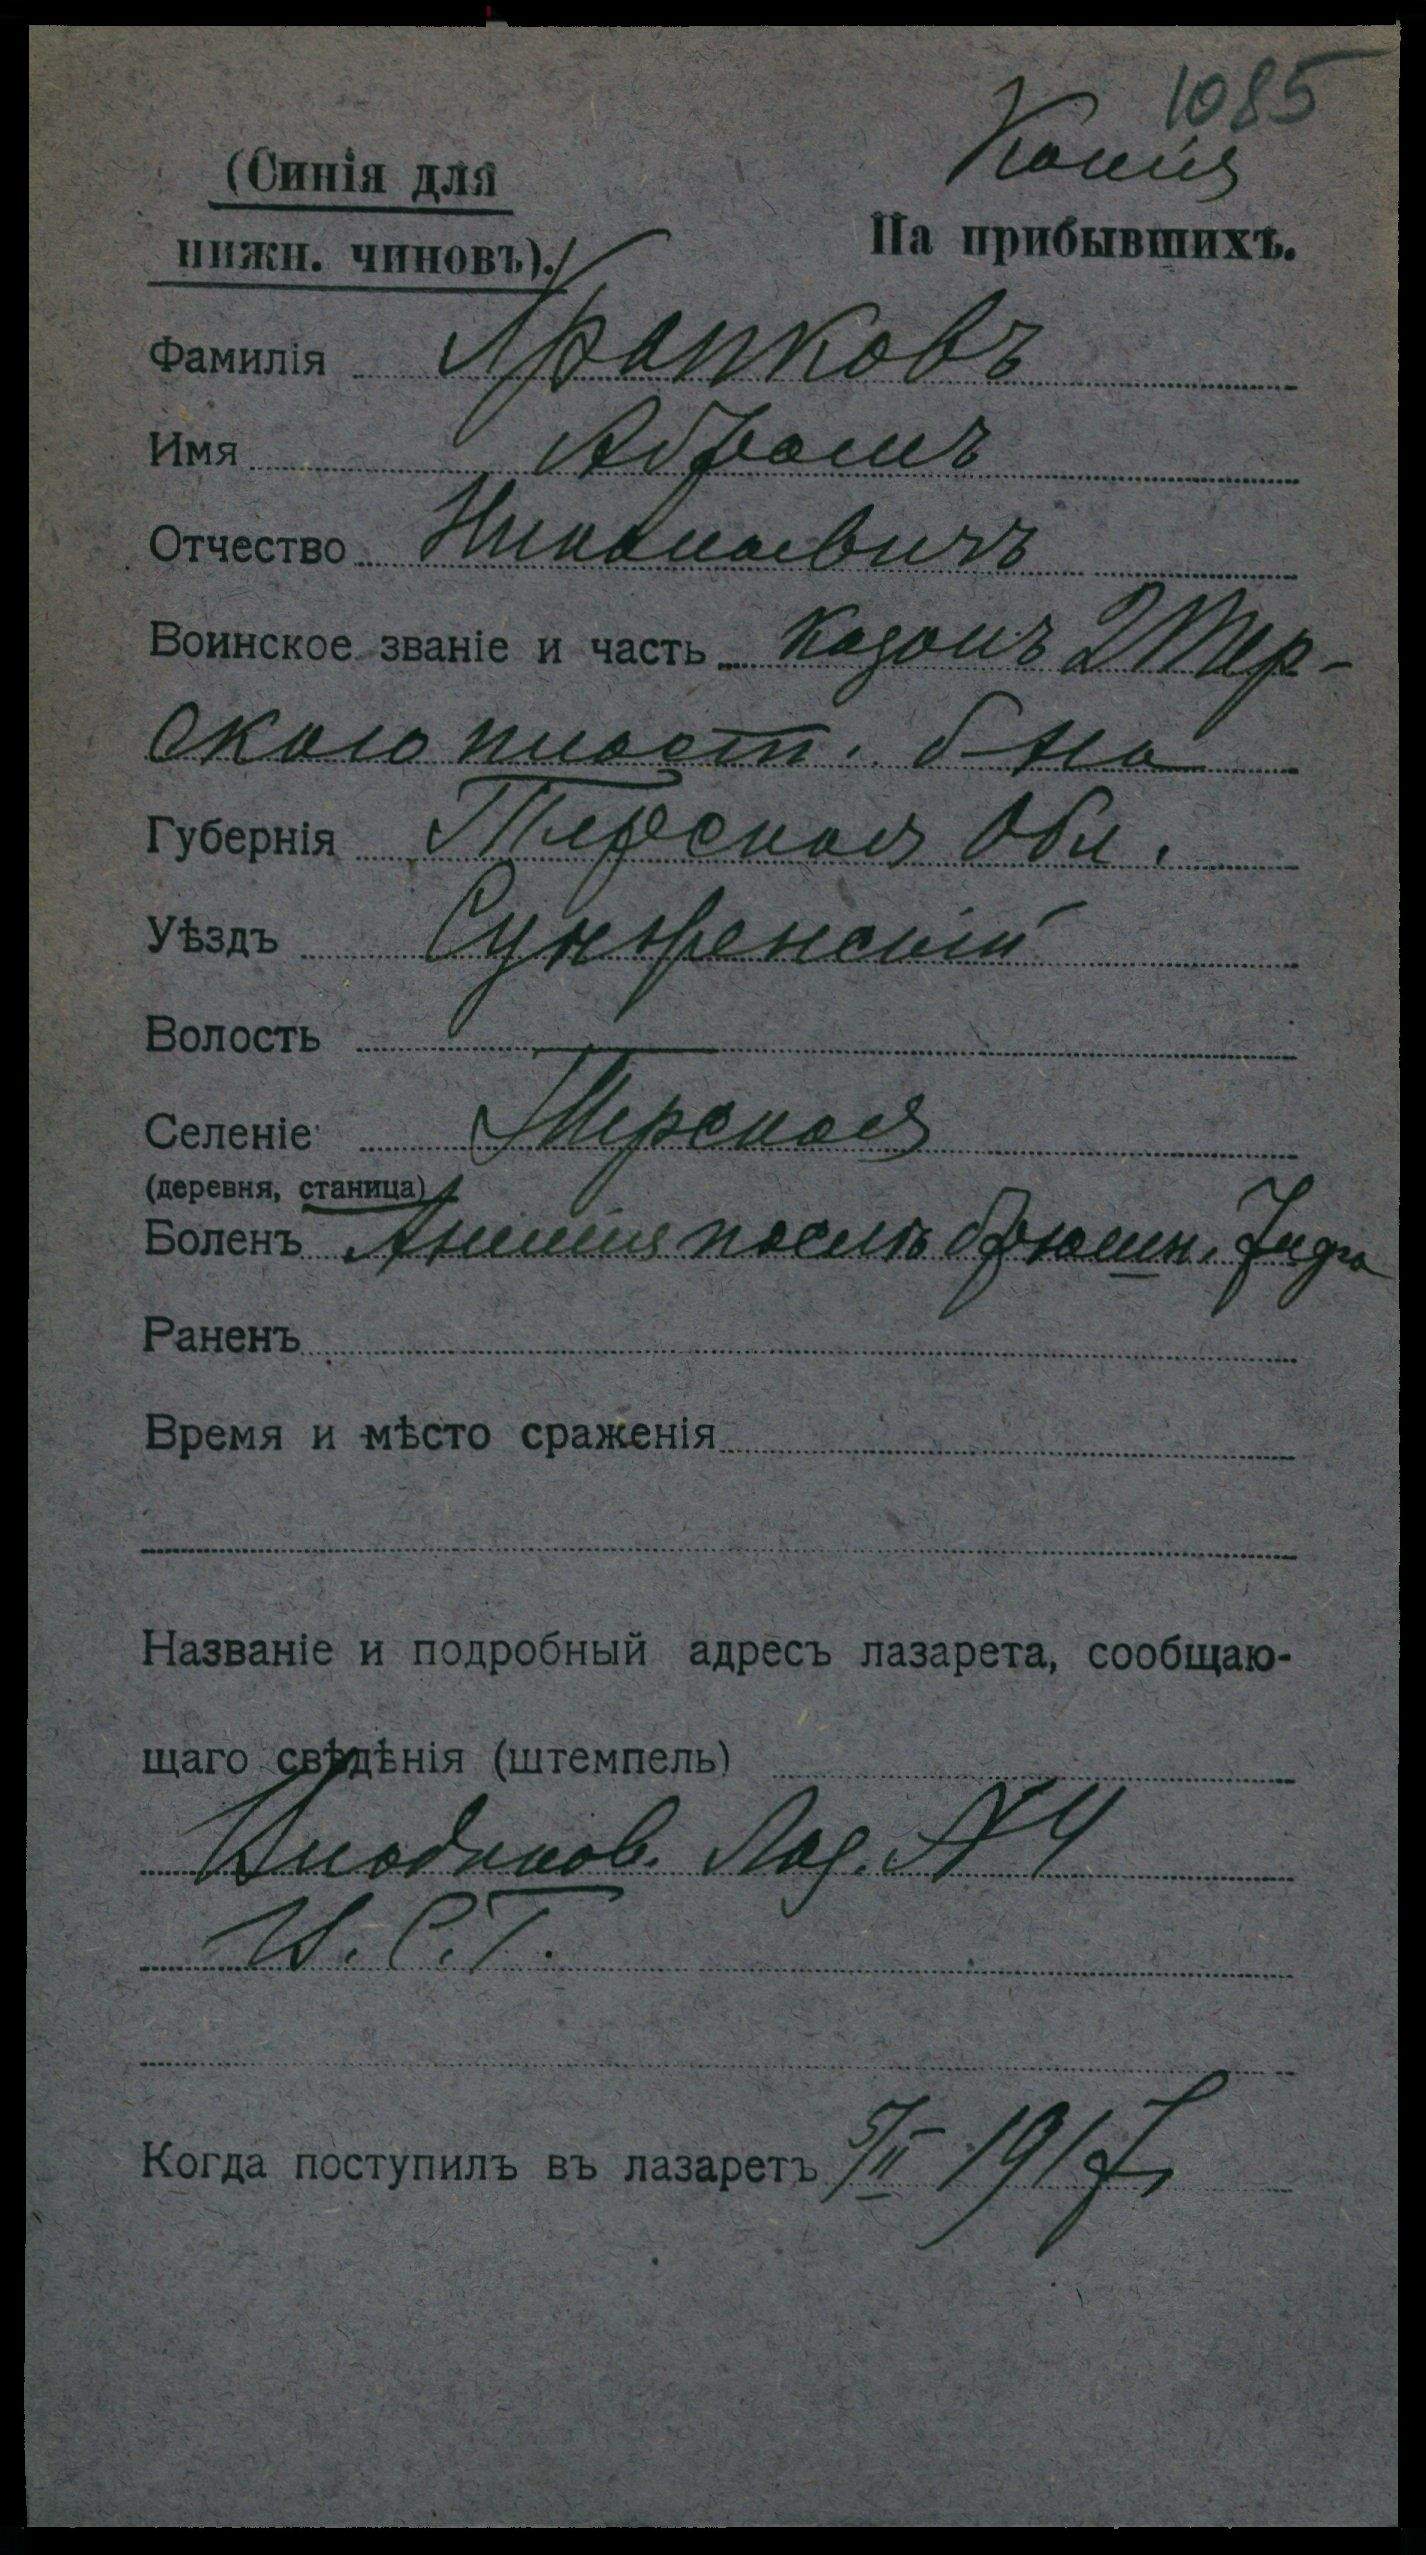 1085
Копія
(Синія для
нижн. чиновъ).
На прибывшихъ.
Фамилія Храпковъ
Имя Абрамъ
Отчество Николаевичъ
Воинское званіе и часть казакъ 2 Тер-
скаго пласт. б-на
Губернія Терская Обл.
Уѣздъ Сунженскій
Волость —
Селеніе Терская
(деревня, станица)
Боленъ Анемія послѣ брюшн. тифа
Раненъ
Время и мѣсто сраженія
Названіе и подробный адресъ лазарета, сообщаю-
щаго свѣдѣнія (штемпель)
Лаз. № 4
С. Г.
Когда поступилъ въ лазаретъ 5/II 1917